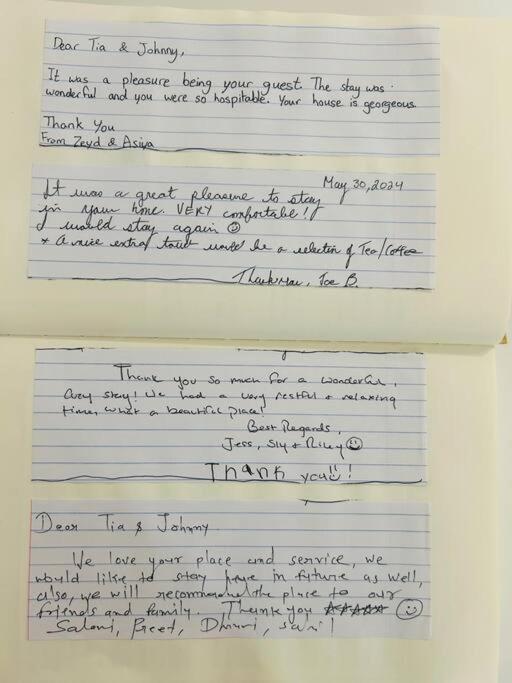 Dear Tia & Johnny,
It was a pleasure being your guest. The stay was
wonderful and you were so hospitable. Your house is georgeous.
Thank You
From Zeyd & Asiya
May 30, 2024
It was a great pleasure to stay
in your home. VERY comfortable!
I would stay again ☺
* A nice extra touch would be a selection of Tea/Coffee
Thank you, Joe B.
Thank you so much for a wonderful,
Cozy stay! We had a very restful & relaxing
time, what a beautiful place!
Best Regards,
Jess, Sly & Riley ☺
Thank you ☺!
Dear Tia & Johnny
We love your place and service, we
would like to stay here in future as well,
also, we will recommend the place to our
friends and family. Thank you ☆☆☆☆☆ ☺
Saloni, Preet,